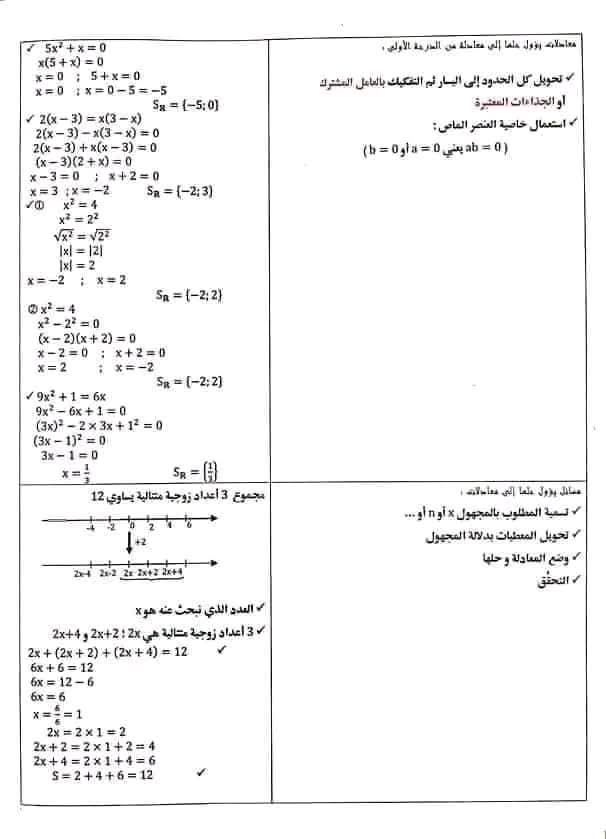 معادلات يؤول حلها إلى معادلة من الدرجة الأولى :
✓ تحويل كل الحدود إلى اليسار ثم التفكيك بالعامل المشترك
أو الجذاءات المعتبرة
✓ استعمال خاصية العنصر الماص :
( ab = 0 يعني a = 0 أو b = 0 )
✓ 5x² + x = 0
x(5 + x) = 0
x = 0 ; 5 + x = 0
x = 0 ; x = 0 − 5 = −5
S_R = {−5; 0}
✓ 2(x − 3) = x(3 − x)
2(x − 3) − x(3 − x) = 0
2(x − 3) + x(x − 3) = 0
(x − 3)(2 + x) = 0
x − 3 = 0 ; x + 2 = 0
x = 3 ; x = −2 S_R = {−2; 3}
✓① x² = 4
x² = 2²
√x² = √2²
|x| = |2|
|x| = 2
x = −2 ; x = 2
S_R = {−2; 2}
② x² = 4
x² − 2² = 0
(x − 2)(x + 2) = 0
x − 2 = 0 ; x + 2 = 0
x = 2 ; x = −2
S_R = {−2; 2}
✓ 9x² + 1 = 6x
9x² − 6x + 1 = 0
(3x)² − 2 × 3x + 1² = 0
(3x − 1)² = 0
3x − 1 = 0
x = 1/3 S_R = {1/3}
مسائل يؤول حلها إلى معادلات :
✓ تسمية المطلوب بالمجهول x أو n أو ...
✓ تحويل المعطيات بدلالة المجهول
✓ وضع المعادلة و حلها
✓ التحقُق
مجموع 3 أعداد زوجية متتالية يساوي 12
-4 -2 0 2 4 6
+2
2x-4 2x-2 2x 2x+2 2x+4
✓ العدد الذي نبحث عنه هو x
✓ 3 أعداد زوجية متتالية هي 2x ; 2x+2 و 2x+4
2x + (2x + 2) + (2x + 4) = 12 ✓
6x + 6 = 12
6x = 12 − 6
6x = 6
x = 6/6 = 1
2x = 2 × 1 = 2
2x + 2 = 2 × 1 + 2 = 4
2x + 4 = 2 × 1 + 4 = 6
S = 2 + 4 + 6 = 12 ✓